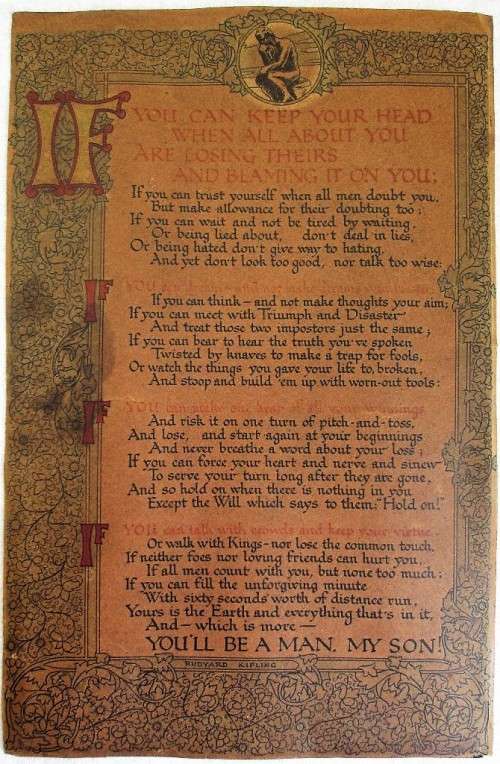 IF YOU CAN KEEP YOUR HEAD
WHEN ALL ABOUT YOU
ARE LOSING THEIRS
AND BLAMING IT ON YOU;
If you can trust yourself when all men doubt you,
But make allowance for their doubting too:
If you can wait and not be tired by waiting,
Or being lied about, don't deal in lies,
Or being hated don't give way to hating,
And yet don't look too good, nor talk too wise:
IF YOU can dream and not make dreams your master
If you can think – and not make thoughts your aim;
If you can meet with Triumph and Disaster
And treat those two impostors just the same;
If you can bear to hear the truth you've spoken
Twisted by knaves to make a trap for fools,
Or watch the things you gave your life to, broken,
And stoop and build 'em up with worn-out tools:
IF YOU can make one heap of all your winnings
And risk it on one turn of pitch-and-toss,
And lose, and start again at your beginnings
And never breathe a word about your loss;
If you can force your heart and nerve and sinew
To serve your turn long after they are gone,
And so hold on when there is nothing in you
Except the Will which says to them: "Hold on!"
IF YOU can talk with crowds and keep your virtue
Or walk with Kings – nor lose the common touch,
If neither foes nor loving friends can hurt you,
If all men count with you, but none too much:
If you can fill the unforgiving minute
With sixty seconds worth of distance run,
Yours is the Earth and everything that's in it,
And – which is more –
YOU'LL BE A MAN, MY SON!
RUDYARD KIPLING